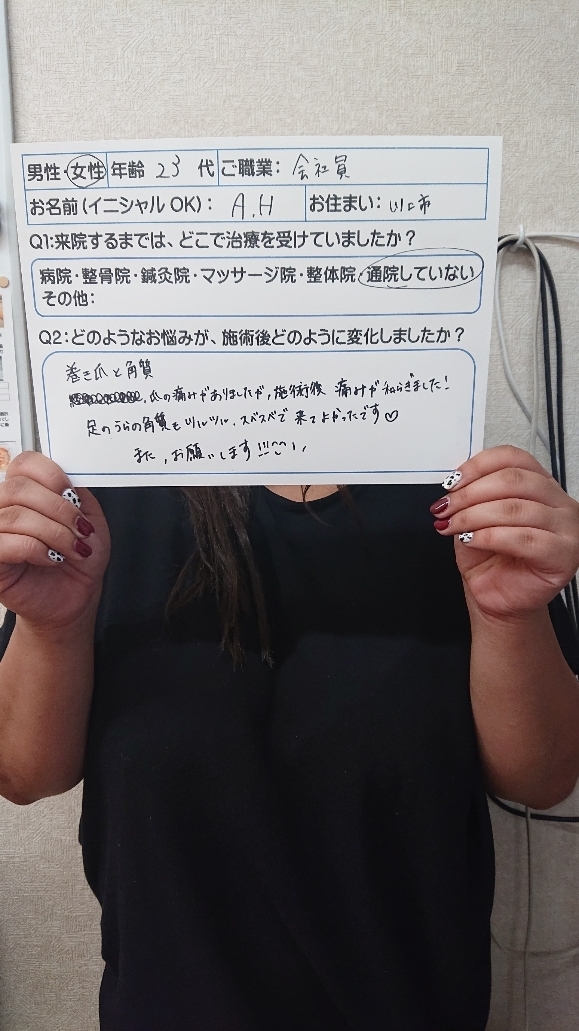 男性・女性 年齢 23 代 ご職業: 会社員
お名前(イニシャルOK): A.H お住まい: 川口市
Q1:来院するまでは、どこで治療を受けていましたか?
病院・整骨院・鍼灸院・マッサージ院・整体院・通院していない
その他:
Q2:どのようなお悩みが、施術後どのように変化しましたか?
巻き爪と角質
、爪の痛みがありましたが、施術後 痛みが和らぎました!
足のうらの角質もツルツル、スベスベで来てよかったです♡
また、お願いします!!!